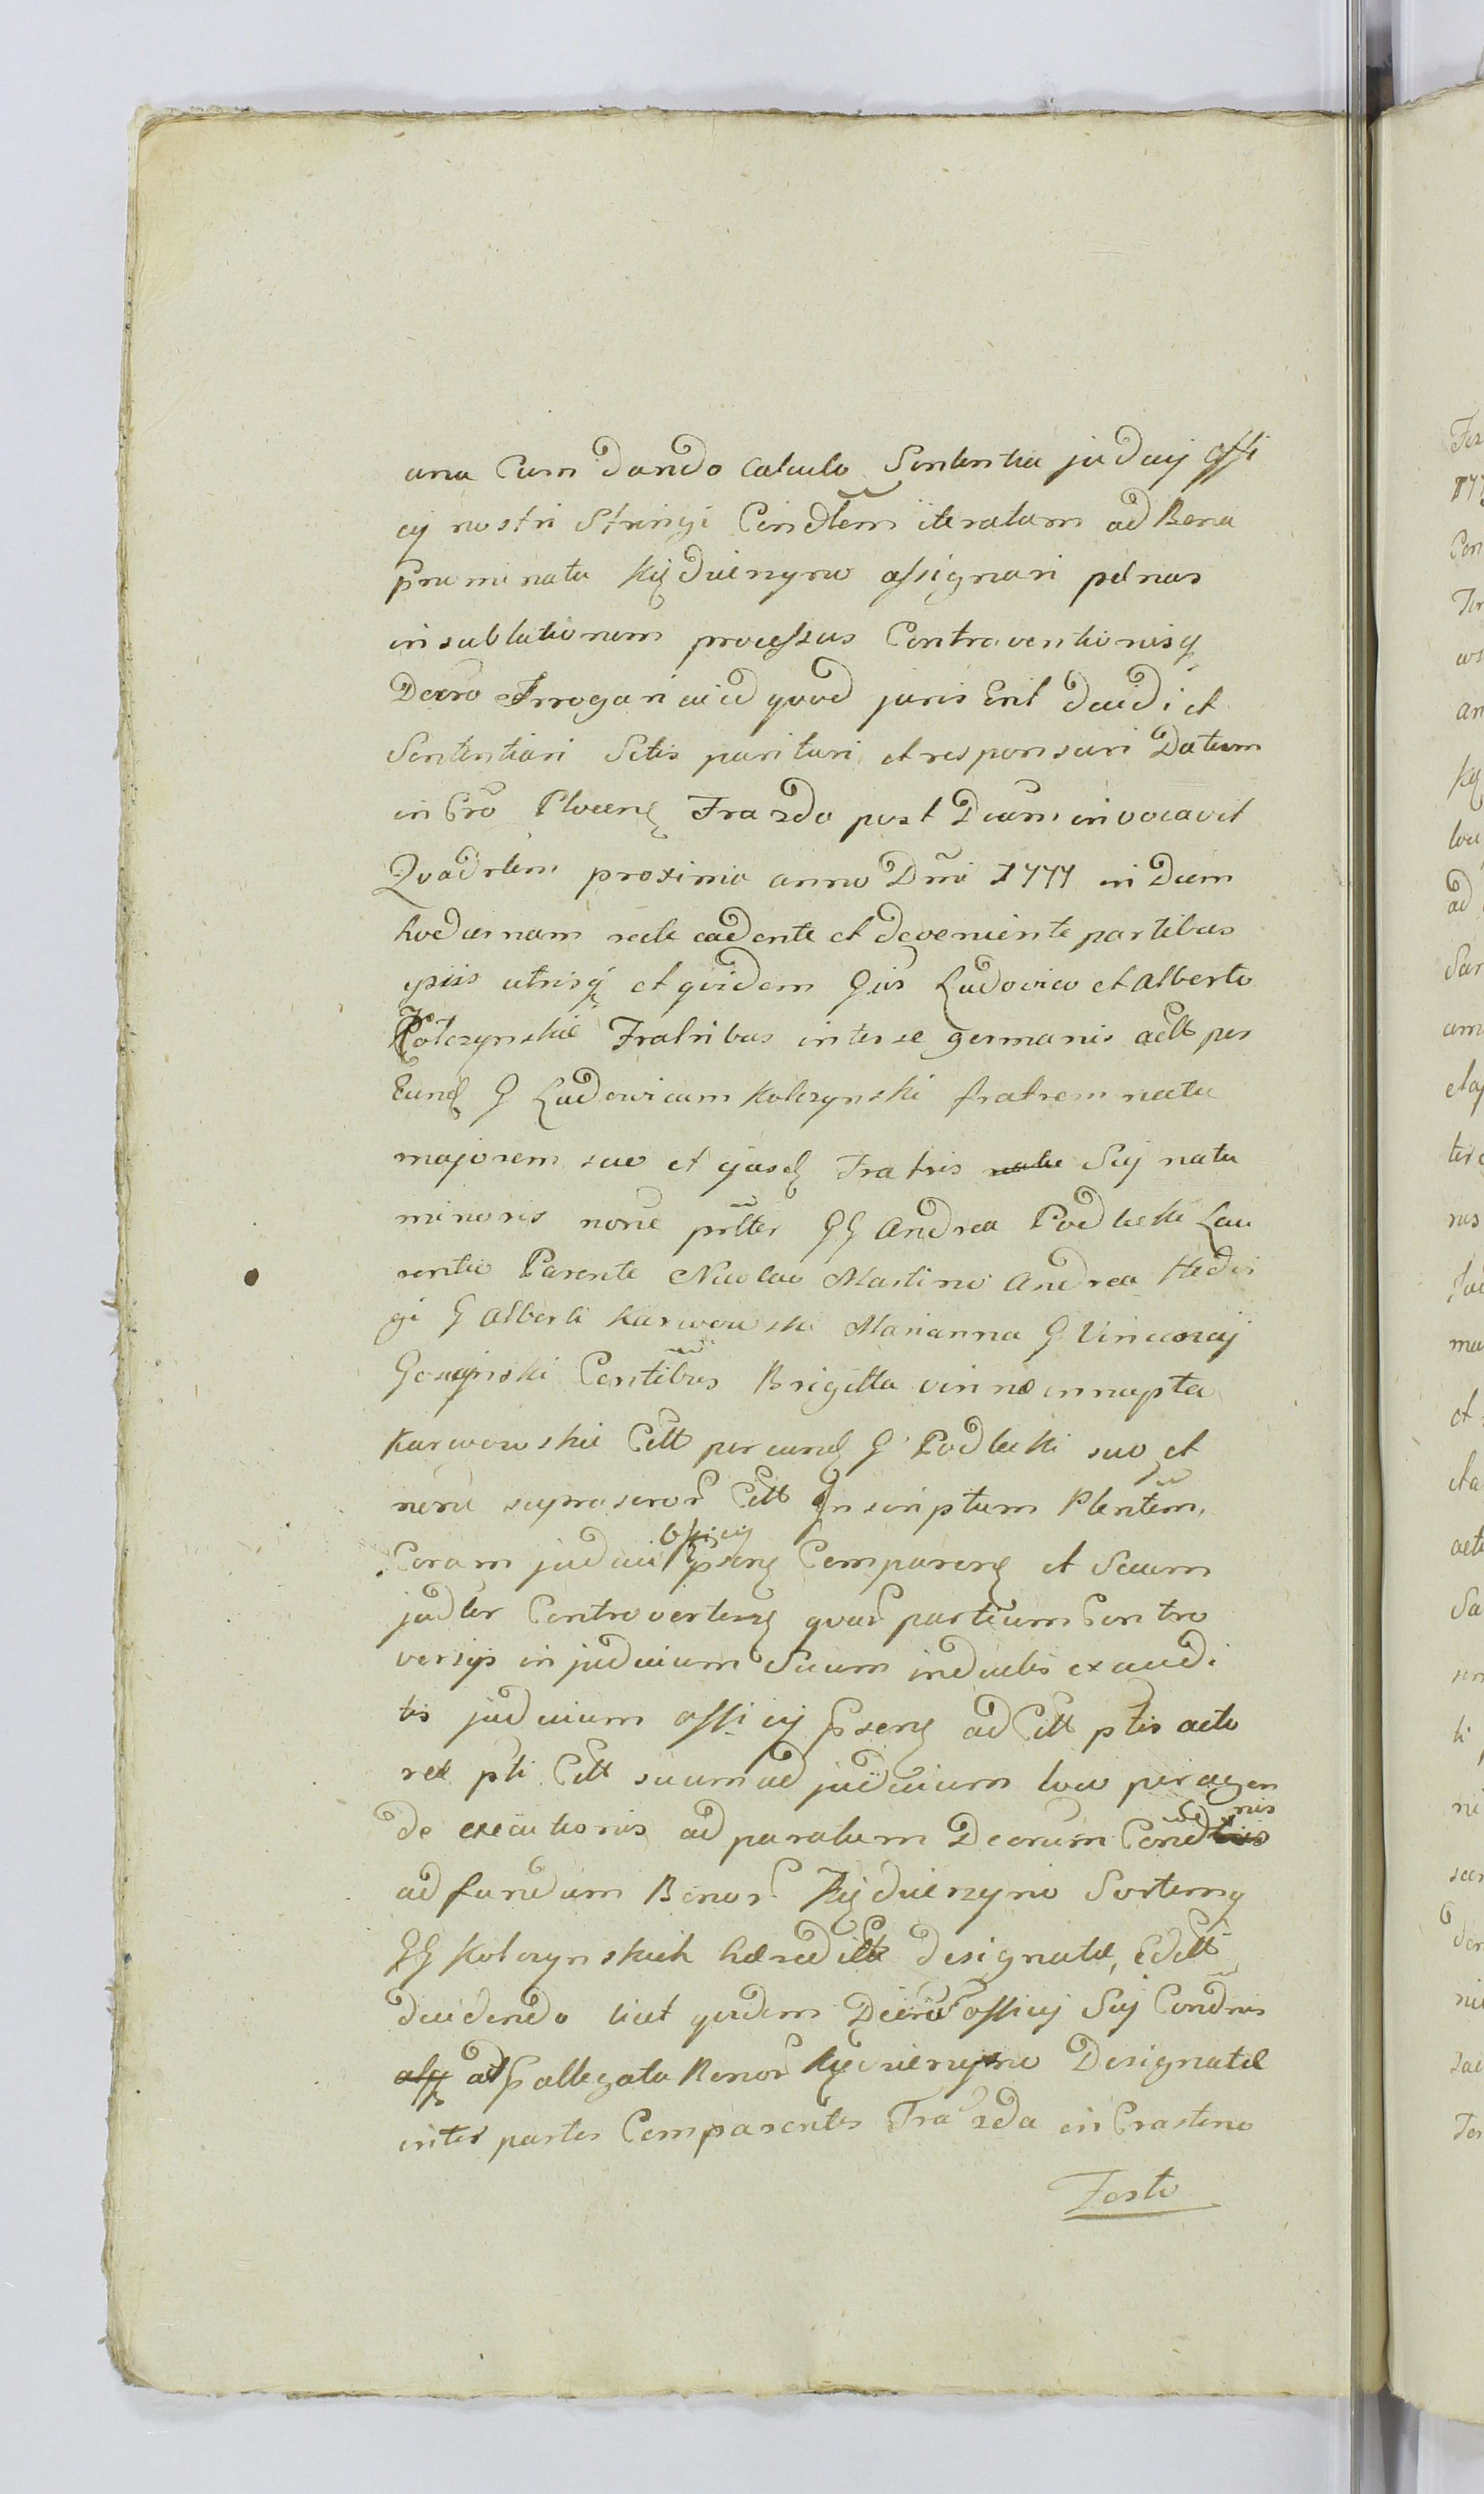 una Cum dando calculo Sententia judicij offi
cij nostri Stringi Condtem iteratam ad Bona
prnominata Kiędzierzyno assignari pænas
in sublationem processus Contraventionisq
Decro Irrogari aliud quod juris Erit decidi et
Sententiari Sctis parituri et responsuri Datum
in Cro Plocen Fra 2da post Dcam invocavit
Quadrlem proxima anno Dni 1777 in Diem
hodiernam recte cadente et deveniente partibus
ipsis utrisq et quidem Gis Ludovico et Alberto
Kolczynskie Fratribus inter se germanis actb per
Eund G Ludovicum Kolczynski fratrem natu
majorem suo et ejusd Fratris Sui natu
minoris none prlter GG Andrea Podlecki Lau
rentio Parente Nicolao Martino Andrea Hedvi
gi G Alberti Karwowski Marianna G Vincencij
Goszinski Contibus Brigitta virine innupta
Karwowskie Citt per eund G Podlecki suo et
none suprascror Citt Inscriptum Plentem.
Coram judicio Officij psen Comparen et Secum
judler Controverten quar partium Contro
versijs in judicium Suum inductis exaudi
tis judicium officij psen ad Citt ptis acto
reæ pti Citt suum ad judicium loco peragen
dæ executionis ad paratum Decrum Cond nis
ad fundum Bonor Kiędzierzyno Sortemq
GG Kolczynskich hæredit designatæ, Edtt
decidendo licet quidem Decro officij Sui Condnis
ad p allegata Bonor Kiędzierzyno Designatæ
inter partes Comparentes Fra 2da in Crastino
Festo